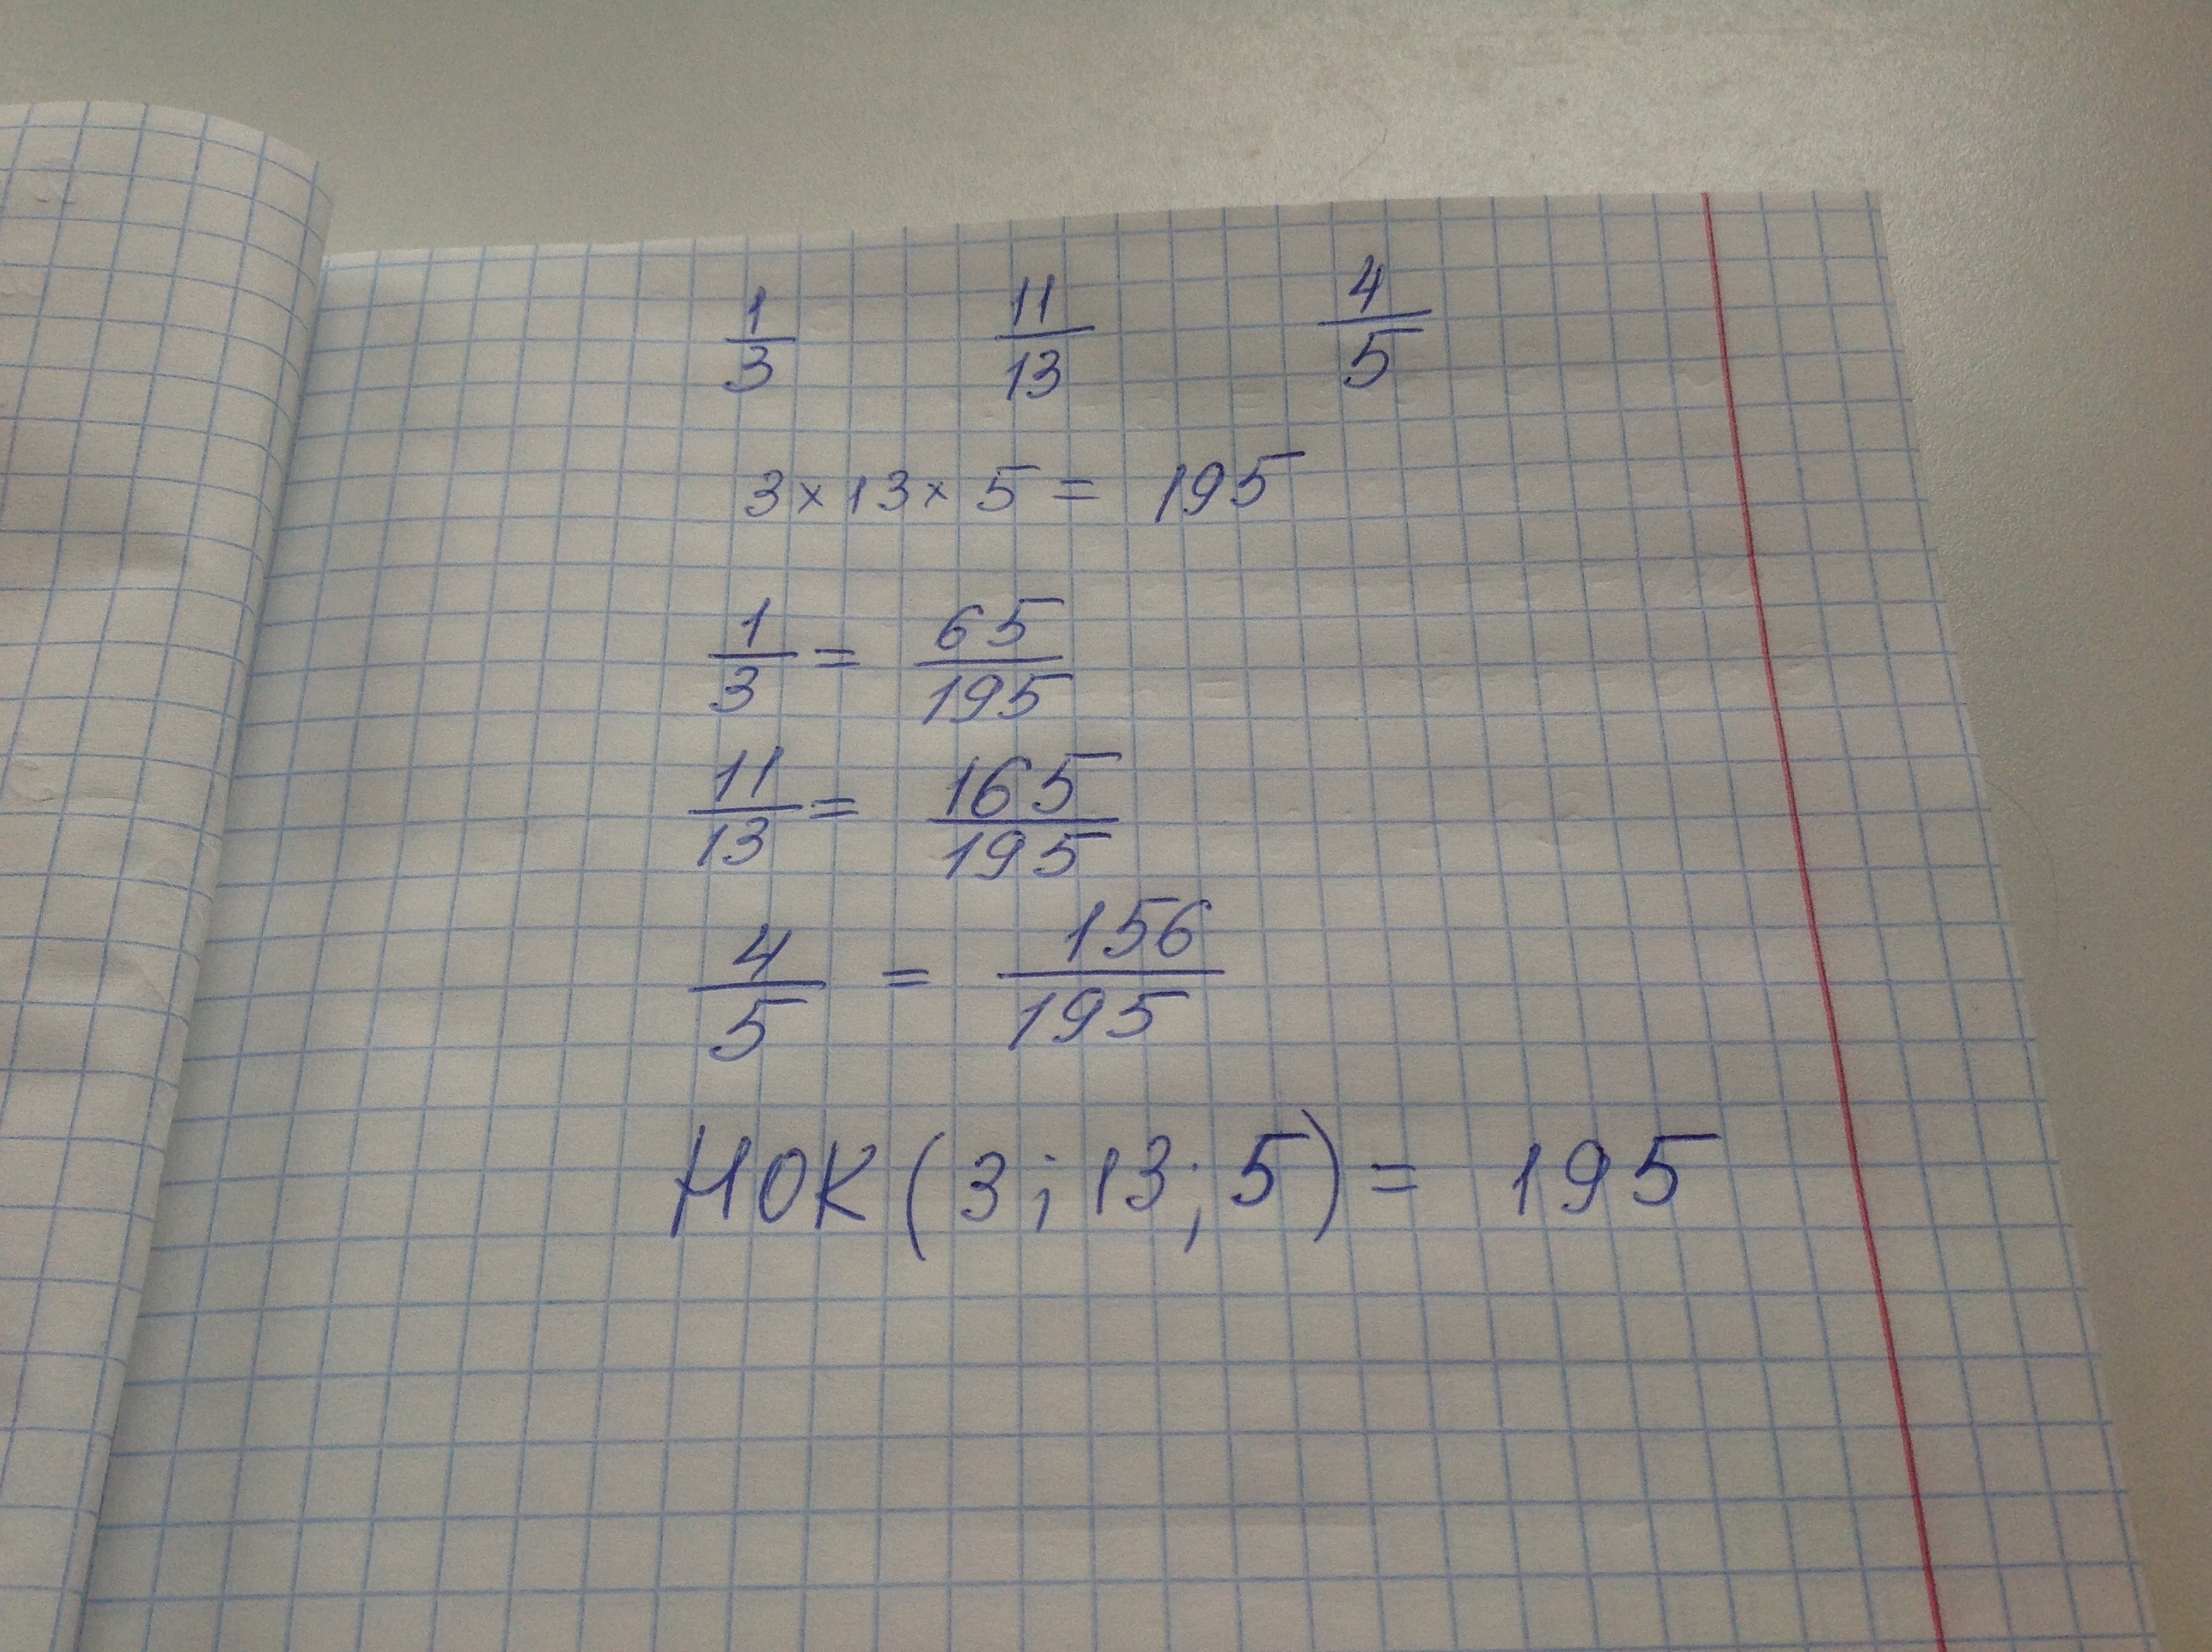 1/3 11/13 4/5
3 × 13 × 5 = 195
1/3 = 65/195
11/13 = 165/195
4/5 = 156/195
НОК (3; 13; 5) = 195